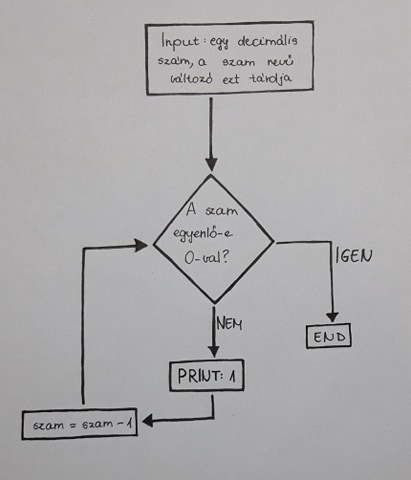 Input: egy decimális
szám, a szam nevű
változó ezt tárolja
A szam
egyenlő-e
0-val?
IGEN
NEM
END
PRINT: 1
szam = szam - 1